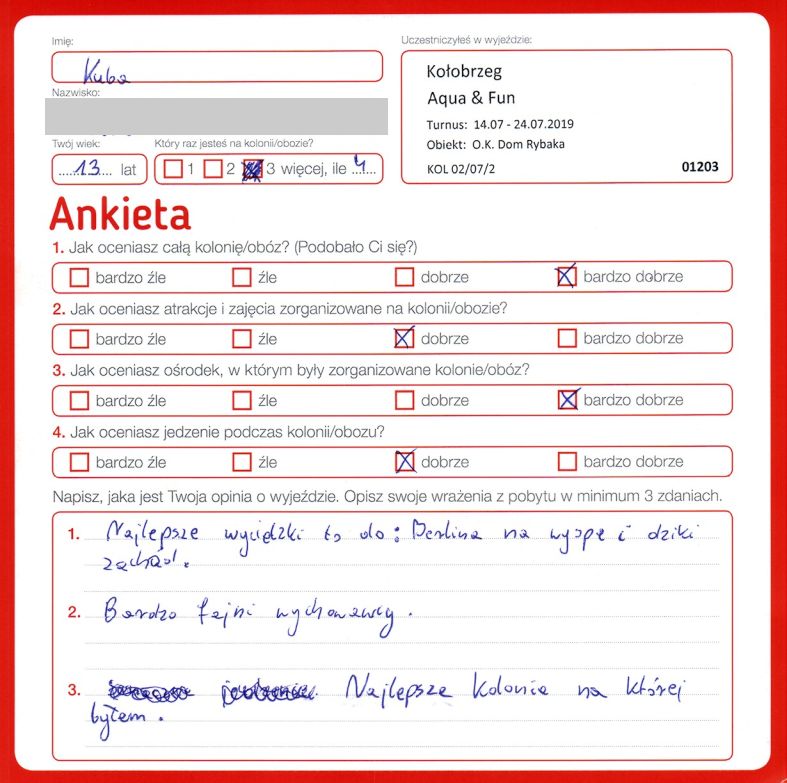 Imię:
Kuba
Nazwisko:
Twój wiek:
Który raz jesteś na kolonii/obozie?
.....13.... lat
1 2 3 więcej, ile ..4...
Uczestniczyłeś w wyjeździe:
Kołobrzeg
Aqua & Fun
Turnus: 14.07 - 24.07.2019
Obiekt: O.K. Dom Rybaka
KOL 02/07/2 01203
Ankieta
1. Jak oceniasz całą kolonię/obóz? (Podobało Ci się?)
bardzo źle źle dobrze bardzo dobrze
2. Jak oceniasz atrakcje i zajęcia zorganizowane na kolonii/obozie?
bardzo źle źle dobrze bardzo dobrze
3. Jak oceniasz ośrodek, w którym były zorganizowane kolonie/obóz?
bardzo źle źle dobrze bardzo dobrze
4. Jak oceniasz jedzenie podczas kolonii/obozu?
bardzo źle źle dobrze bardzo dobrze
Napisz, jaka jest Twoja opinia o wyjeździe. Opisz swoje wrażenia z pobytu w minimum 3 zdaniach.
1. Najlepsze wyciedzki to do: Berlina na wyspe i dziki
zachód.
2. Bardzo fajni wychowawcy.
3. Najlepsza kolonia na której
byłem.